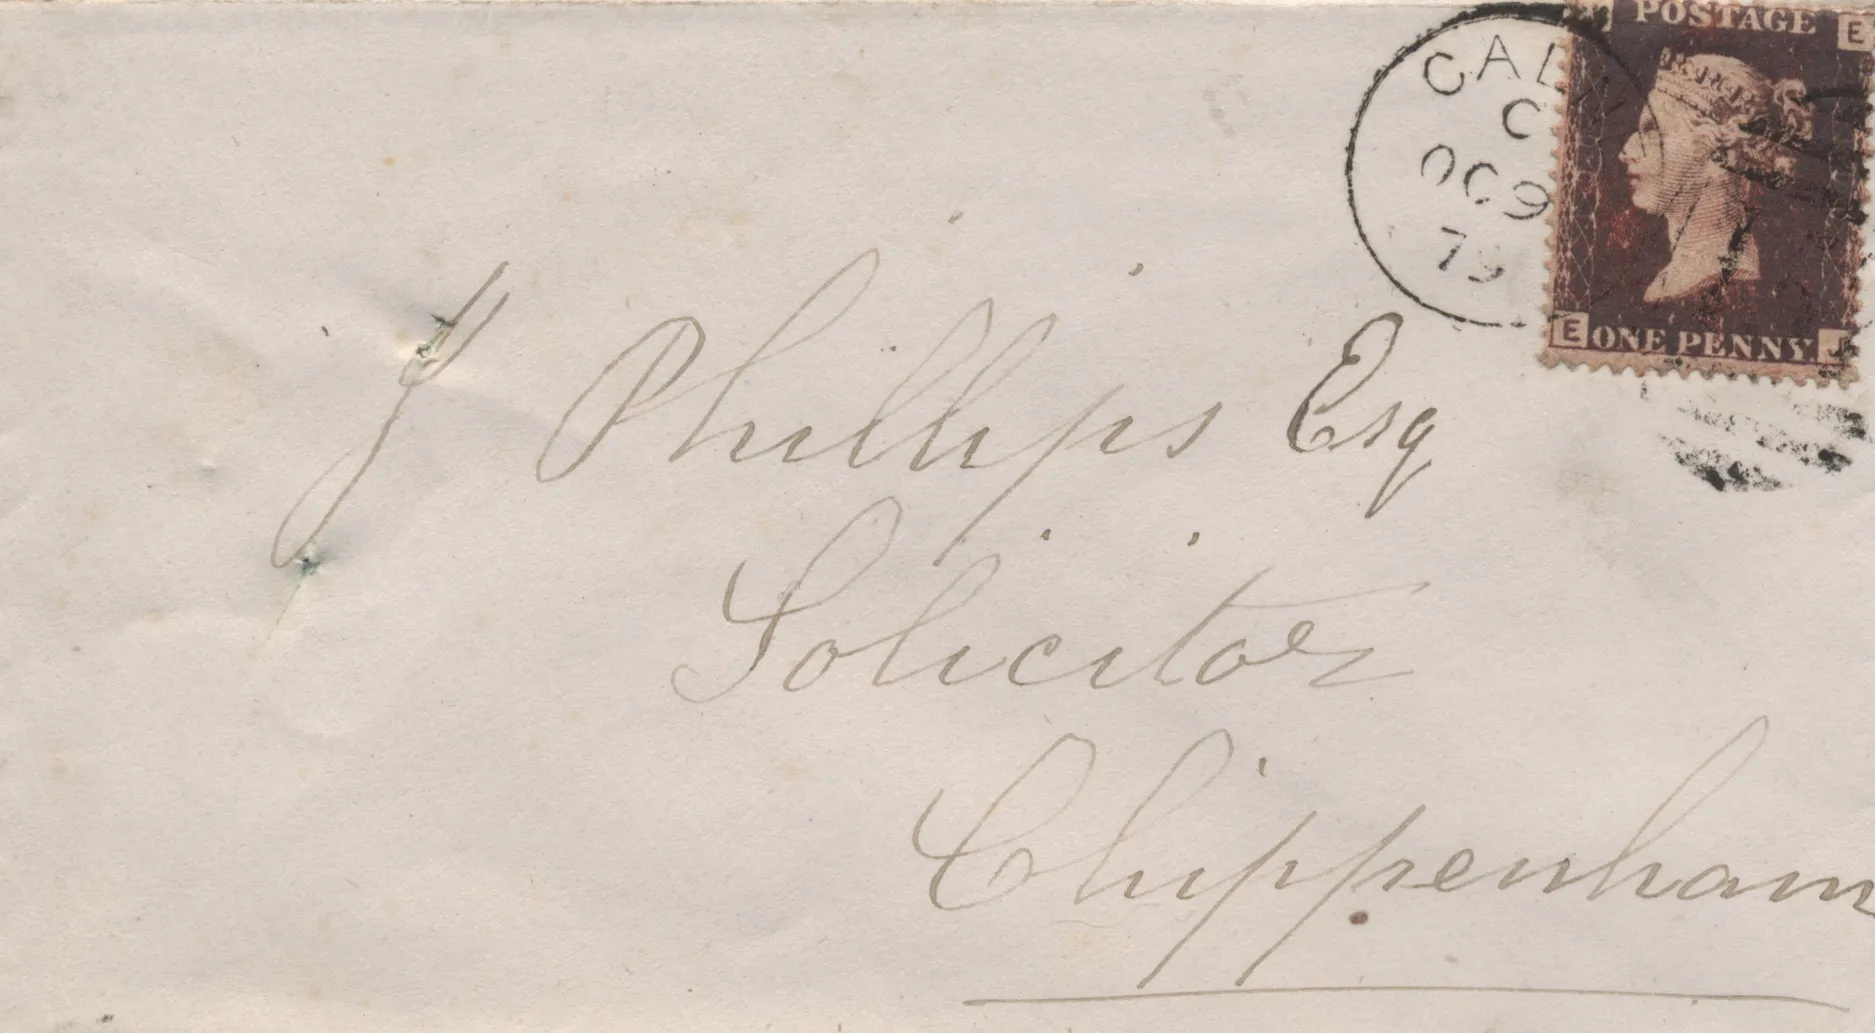 POSTAGE
E
CALN
C
OC 9
79
E ONE PENNY J
J Phillips Esq
Solicitor
Chippenham